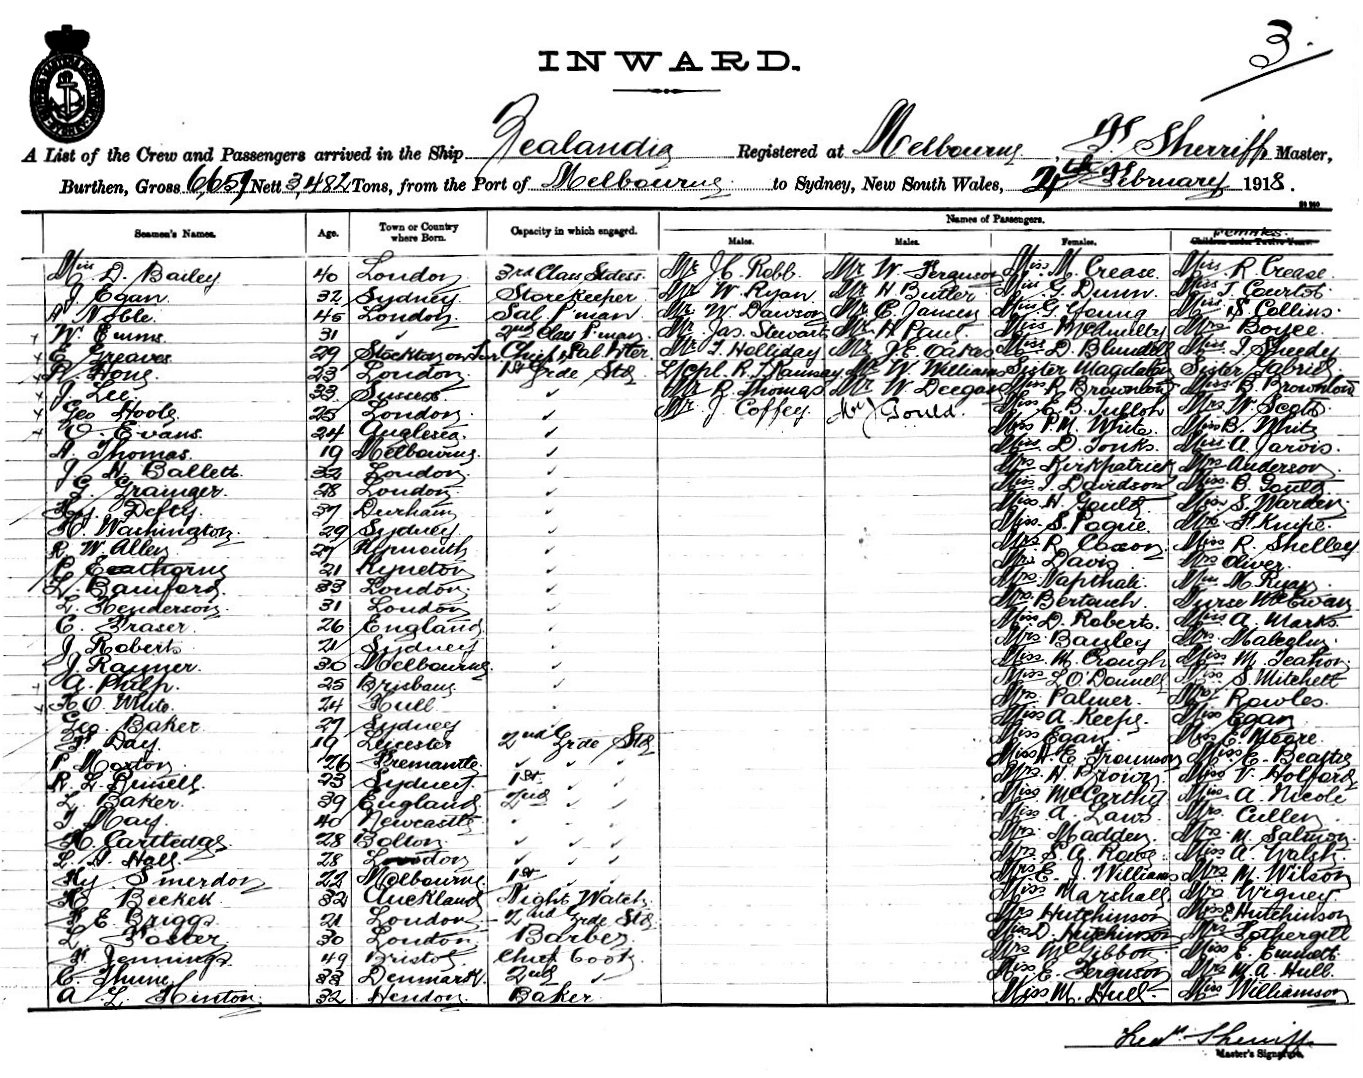 3.
INWARD.
A List of the Crew and Passengers arrived in the Ship Zealandia Registered at Melbourne, Sherriff Master,
Burthen, Gross 6659 Nett 3,482 Tons, from the Port of Melbourne to Sydney, New South Wales, 4th February 1918.
Names of Passengers.
Seamen's Names. Age. Town or Country where Born. Capacity in which engaged. Males. Males. Females. Females.
Miss D. Bailey 40 London 3rd Class Stdess. Mr J C Robb. Mr W Ferguson Miss M Crease. Miss R. Crease.
J Egan 32 Sydney Storekeeper Mr W Ryan Mr H Butler Miss G Dunn. Miss T. Courtot.
Noble 45 London Sal. P'man Mr W Dawson Mr C. Jansen Miss G Young Miss S Collins.
W. Emms 31 " 2nd Class P'man Mr Jas. Stewart Mr H Miss McAnulty Mrs Boyce.
C. Greaves 29 Stockton on Tees Chief Sal. Wter. Mr T. Holliday Mr J.E. Oakes Miss D. Blundell Miss T. Sheedy
Hone 23 London 1st Grde Std L/Cpl. R. J Ramsay Mr W Williams Sister Magdalen Sister Gabriel
J. Lee 33 Sussex Mr R Thomas Mr W Deegan Miss R Brownlow Miss B. Brownlow
Geo Hoole 25 London Mr J. Coffey Mr J Gould. Miss E B. Sutton Mrs W Scott.
E. Evans 24 Anglesea. Miss P. M. White. Miss B. White
H. Thomas 19 Melbourne Miss D. Tonks. Miss A. Jarvis.
J H. Ballett 32 London Mrs Kirkpatrick Mrs Anderson
G. Grainger. 28 London Miss I. Davidson Miss B. Gould
Hy. Defty. 37 Durham Miss H. Gould Miss S. Warden
H. Washington 29 Sydney Miss. S. Pogue. Mrs F. Knipe.
R. W. Allen 27 Plymouth Mrs R Coxon Miss R. Shelley
P. Eathorne 21 Kyneton Mrs Davis Mrs Oliver.
L. Bamford 33 London Mrs. Napthali. Miss M. Ryan
L. Henderson 31 London Mrs. Bertouch. Nurse McEwan
C. Fraser. 26 England Miss D. Roberts. Miss A. Marks
J Roberts 21 Sydney Mrs. Bayley Mrs.
J. Rayner. 30 Melbourne Miss. M. Crough Miss M. Seaton
G. Philp. 25 Brisbane Miss L O'Donnell Miss S. Mitchell
H O. White. 24 Hull Mrs. Palmer. Mrs Rowles
Geo. Baker 27 Sydney Miss A. Keefe. Miss Egan
F. Day. 19 Leicester 2nd Grde Std Miss Egan Miss E. Negre.
P Morton 26 Fremantle Miss H. E. Miss E. Beasley
R. L. Russell 23 Sydney 1st Mrs. H Brown Miss V. Holford
L. Baker. 39 England 2nd Miss McCarthy Miss A. Nicole
T May. 40 Newcastle Miss A. Laws Mrs. Cullen
H. Cartledge 28 Bolton Mrs. Madden. Mrs. M. Salmon
L. H. Hall 28 London Mrs. S. G. Rowe. Miss A. Walsh
Hy Smerdon 22 Melbourne 1st Mrs. E. J. Williams Mrs. M. Wilson
H. Beckek 32 Auckland Night Watch Miss Marshall Mrs. Wigney
F. E. Briggs 21 London 2nd Grde Std Mrs Hutchinson Miss E Hutchinson
L. Foster 30 London Barber Miss D. Hutchinson Mrs Fothergill
H. Jennings 49 Bristol Chief Cook Mrs McGibbon Miss E. Emmett.
C. Thune 33 Denmark 2nd " Miss E. Ferguson Mrs M. A. Hull.
A L. Hinton 32 Hendon. Baker. Miss M. Hull. Miss Williamson
Sherriff
Master's Signature.